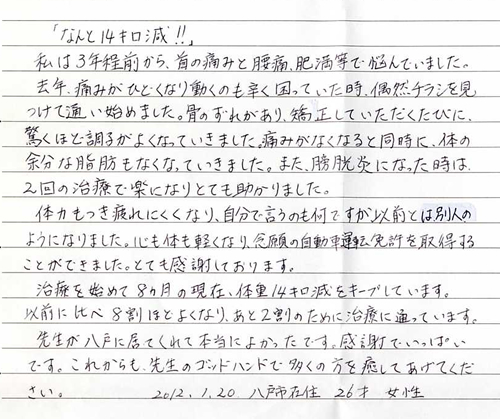 「なんと14キロ減!!」
私は3年程前から、首の痛みと腰痛、肥満等で悩んでいました。
去年、痛みがひどくなり動くのも辛く困っていた時、偶然チラシを見
つけて通い始めました。骨のずれがあり、矯正していただくたびに、
驚くほど調子がよくなっていきました。痛みがなくなると同時に、体の
余分な脂肪もなくなっていきました。また、膀胱炎になった時は、
2回の治療で楽になりとても助かりました。
体力もつき疲れにくくなり、自分で言うのも何ですが以前とは別人の
ようになりました。心も体も軽くなり、念願の自動車運転免許を取得する
ことができました。とても感謝しております。
治療を始めて8ヵ月の現在、体重14キロ減をキープしています。
以前に比べ8割ほどよくなり、あと2割のために治療に通っています。
先生が八戸に居てくれて本当によかったです。感謝でいっぱい
です。これからも、先生のゴッドハンドで多くの方を癒してあげてくだ
さい。 2012.1.20 八戸市在住 26才 女性